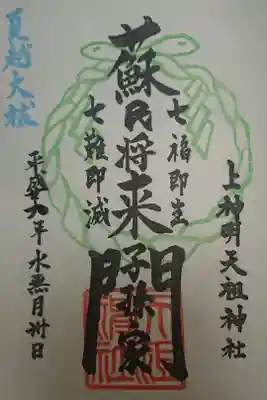 上神明天祖神社
七福即生
蘇民将来子孫家門
七難即滅
夏越大祓
平成 年水無月卅日